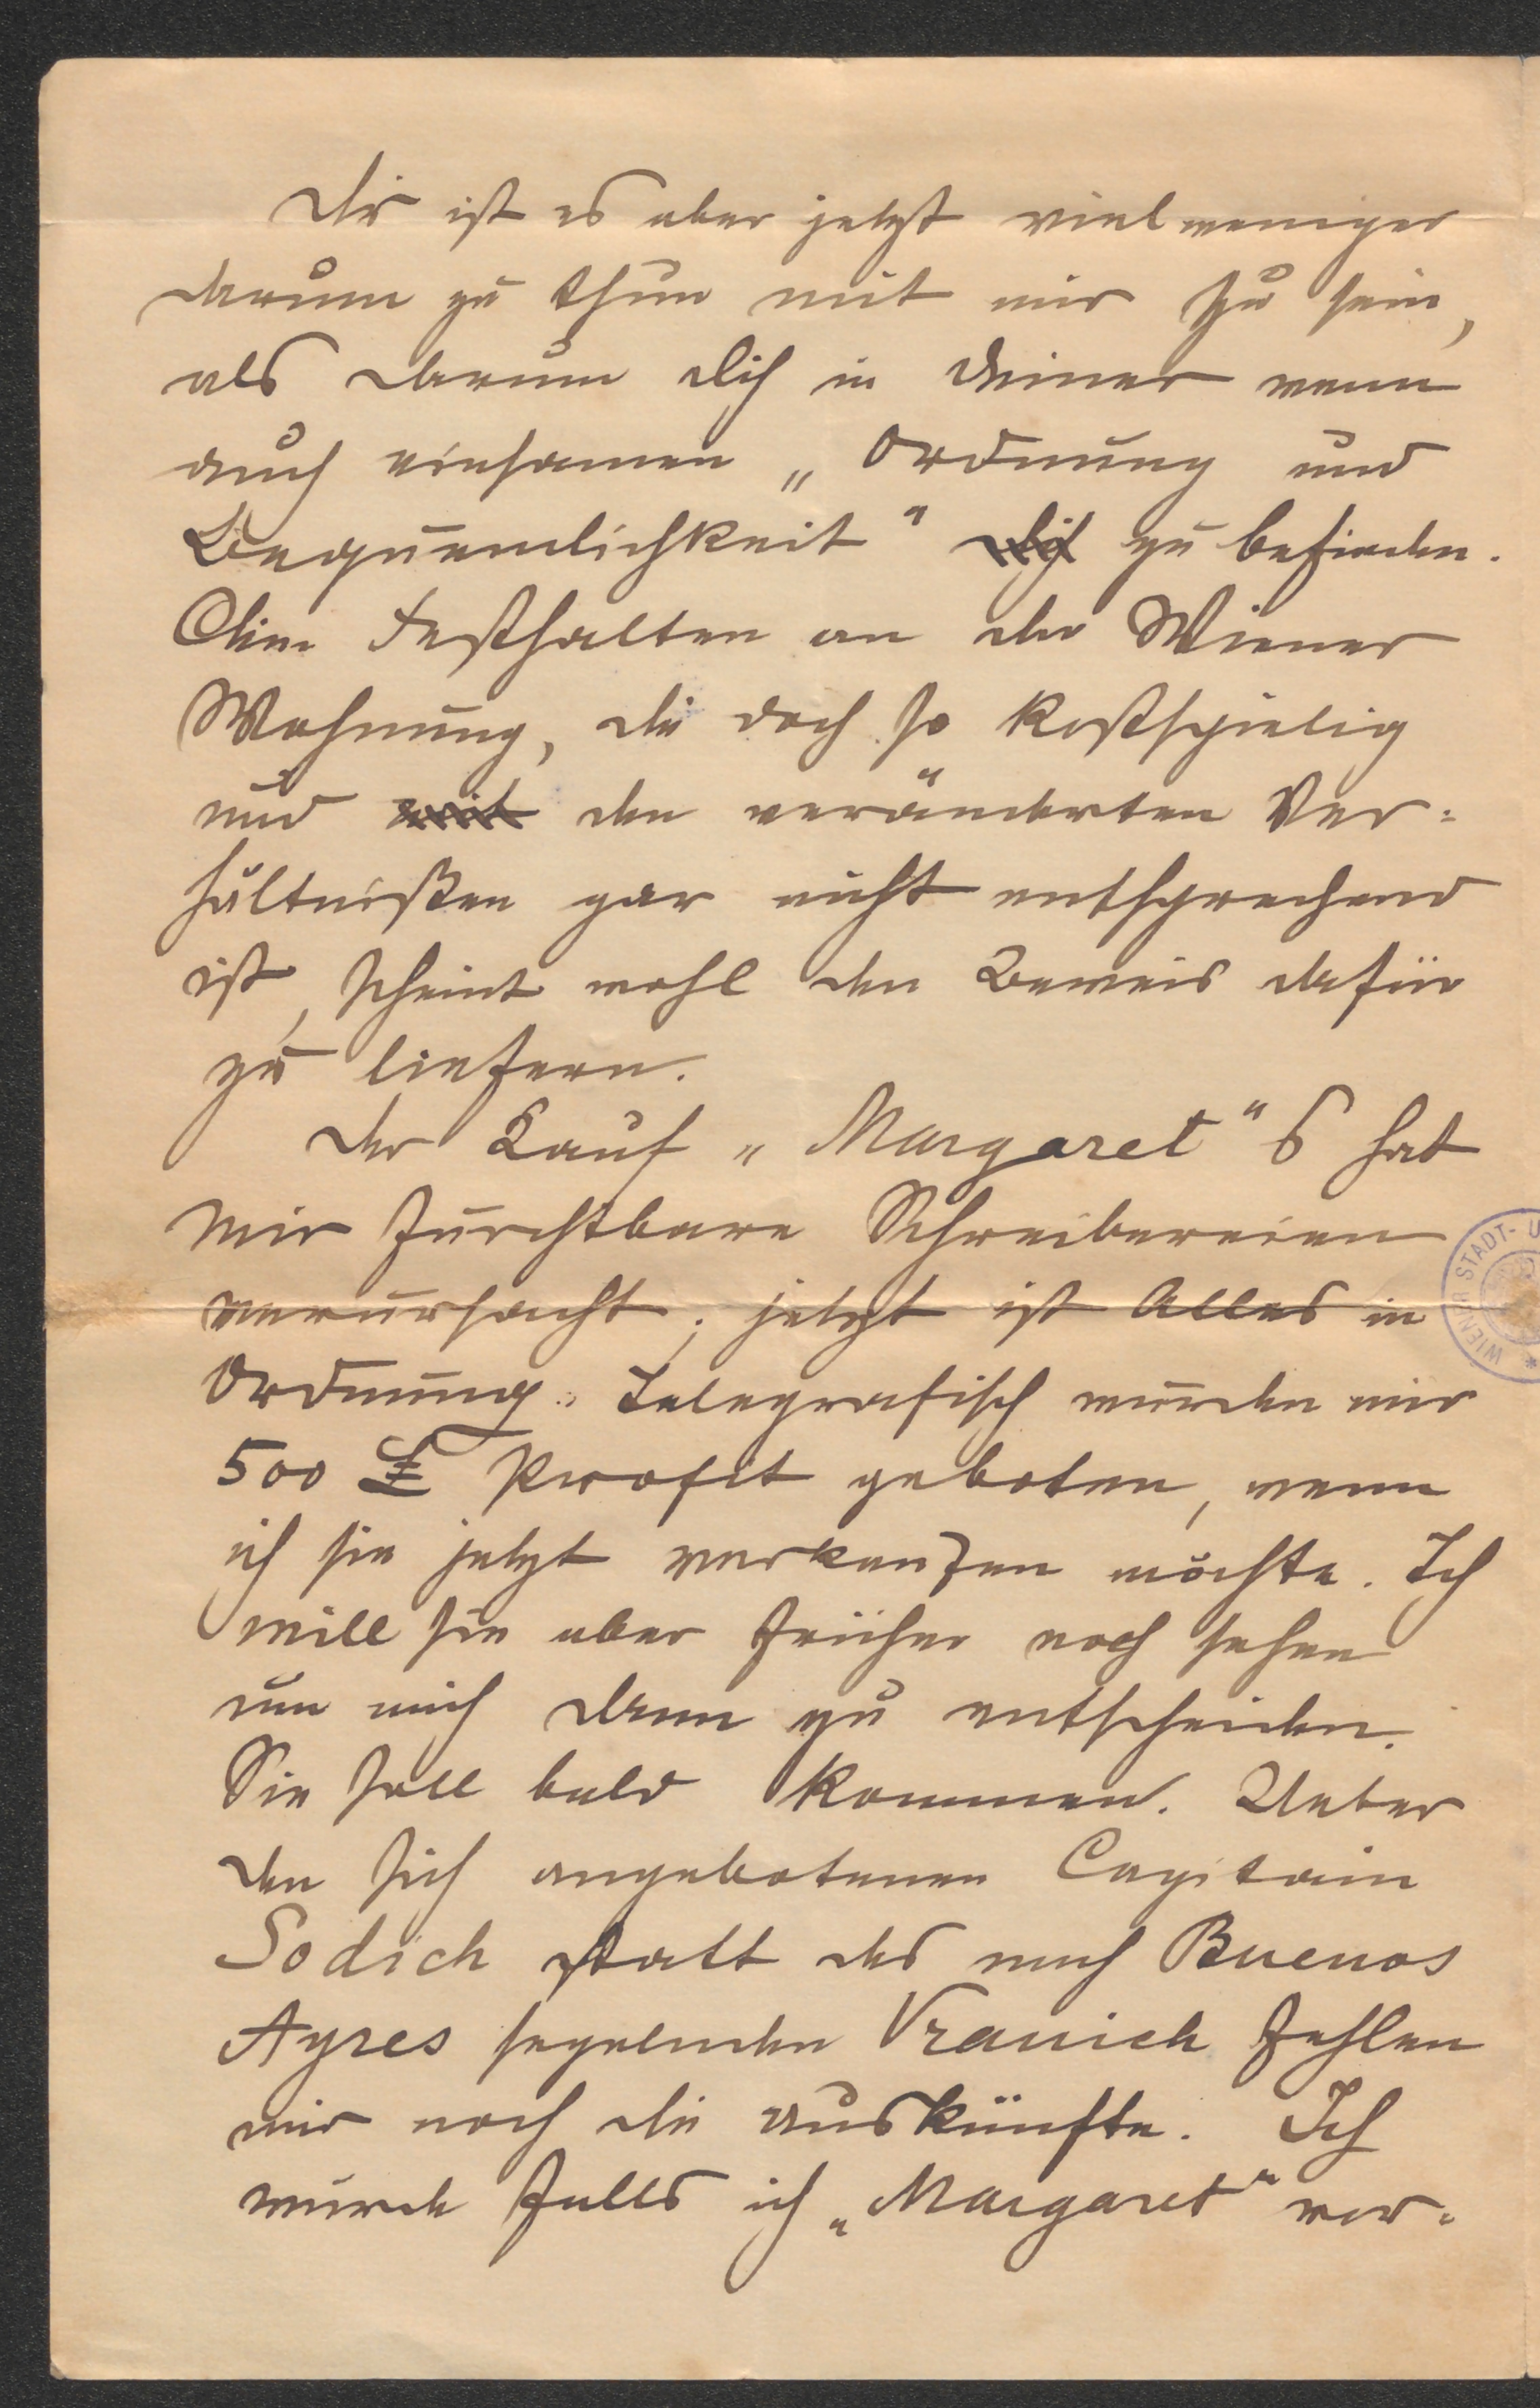 Dir ist es aber jetzt viel weniger
darum zu thun mit mir zu sein,
als darum Dich in Deiner wenn
auch einsamen „Ordnung und
Bequemlichkeit“ dich zu befinden.
Dein Festhalten an der Wiener
Wohnung, die doch so kostspielig
und mit den veränderten Ver-
hältnißen gar nicht entsprechend
ist, scheint wohl den Beweis dafür
zu liefern.
Der Kauf „Margaret“s hat
mir furchtbare Schreibereien
verursacht; jetzt ist Alles in
Ordnung. Telegrafisch wurden mir
500 £ Profit geboten, wenn
ich sie jetzt verkaufen möchte. Ich
will sie aber früher noch sehen
um mich dann zu entscheiden.
Sie soll bald kommen. Ueber
den sich angebotenen Capitain
Sodich statt des nach Buenos
Ayres segelnden Vranich fehlen
mir noch die Auskünfte. Ich
wurde falls ich „Margaret“ ver-
WIENER STADT- U